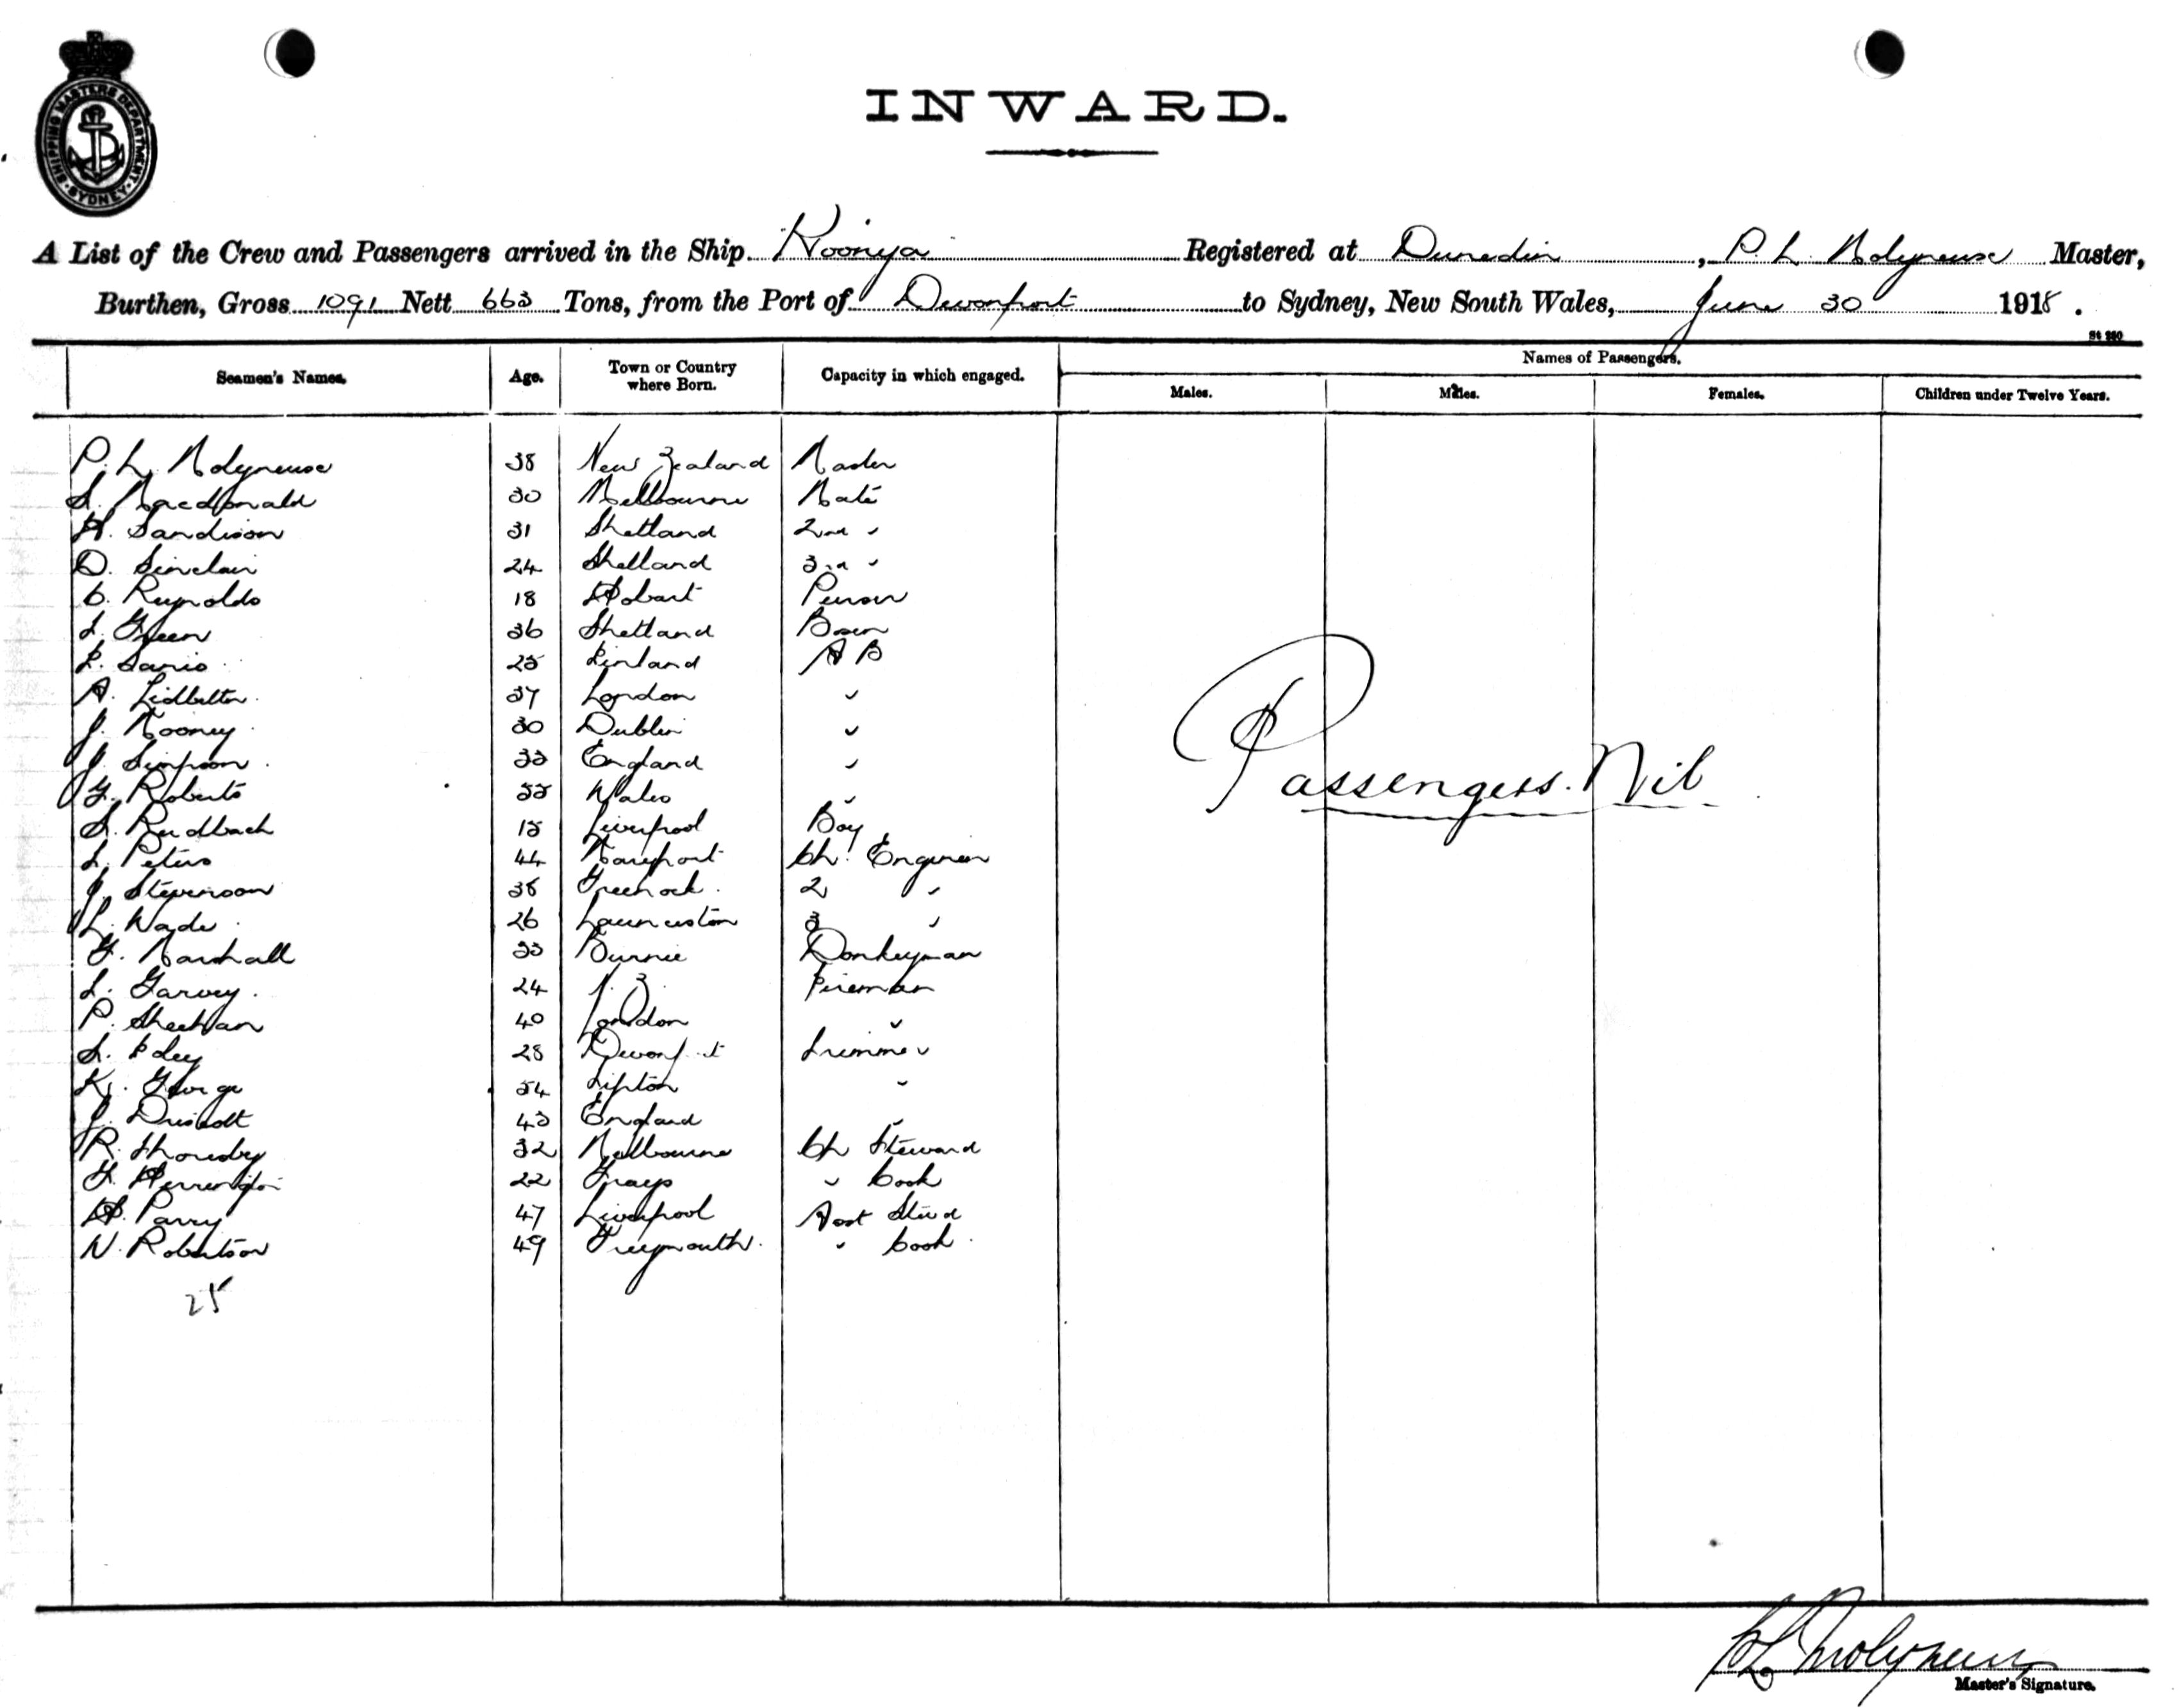 SHIPPING MASTERS DEPARTMENT. SYDNEY
INWARD.
A List of the Crew and Passengers arrived in the Ship Koonya Registered at Dunedin, P. L. Molyneux Master,
Burthen, Gross 1091 Nett 663 Tons, from the Port of Devonport to Sydney, New South Wales, June 30 1918.
St 280
Seamen's Names. Age. Town or Country where Born. Capacity in which engaged. Names of Passengers.
Males. Males. Females. Children under Twelve Years.
P. L. Molyneux 38 New Zealand Master
S. Macdonald 30 Melbourne Mate
H. Sandison 31 Shetland 2nd "
D. Sinclair 24 Shetland 3rd "
C. Reynolds 18 Hobart Purser
L. Green 36 Shetland Bosun
L. Sario 25 Finland A B
A. Lidbetter 37 London "
J. Mooney 30 Dublin "
J. Simpson 33 England "
G. Roberts 55 Wales "
S. Rudbach 15 Liverpool Boy
L. Peters 44 Maryport Ch. Engineer
J. Stevenson 38 Greenock 2 "
L. Wade 26 Launceston 3 "
G. Marshall 33 Burnie Donkeyman
L. Garvey 24 N. Z. Fireman
P. Sheehan 40 London "
S. 28 Devonport Trimmer
K. George 54 Lipton "
J. Driscott 43 England "
R. Thoresby 32 Melbourne Ch Steward
G. Herrington 22 Grays " Cook
H. Parry 47 Liverpool Asst Stwd
N. Robertson 49 Greymouth " Cook
25
Passengers. Nil
P L Molyneux
Master's Signature.